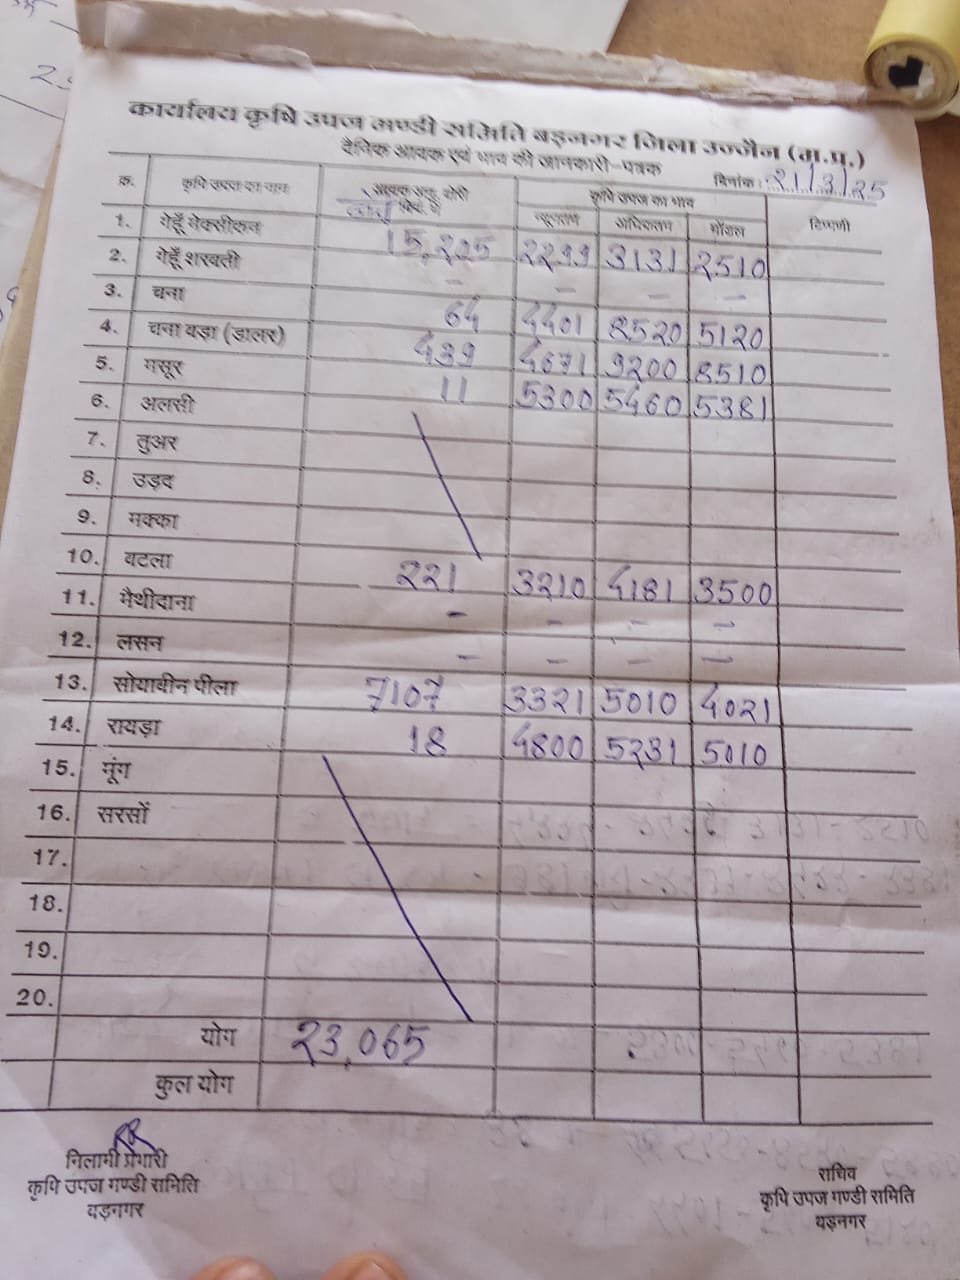 कार्यालय कृषि उपज मण्डी समिति बड़नगर जिला उज्जैन (म.प्र.)
दैनिक आवक एवं भाव की जानकारी-पत्रक
दिनांक : 21/3/25
क्र. कृषि उपज का नाम आवक अनु. बोरी क्विं. में कृषि उपज का भाव टिप्पणी
न्यूनतम अधिकतम मॉडल
1. गेहूँ मेक्सीकन 15,205 2299 3131 2510
2. गेहूँ शरबती - - - -
3. चना 64 4401 8520 5120
4. चना बड़ा (डालर) 439 4671 9200 8510
5. मसूर 11 5300 5460 5381
6. अलसी
7. तुअर
8. उड़द
9. मक्का
10. बटला 221 3210 4181 3500
11. मैथीदाना - - - -
12. लसन - - - -
13. सोयाबीन पीला 7107 3321 5010 4021
14. रायड़ा 18 4800 5231 5010
15. मूंग
16. सरसों
17.
18.
19.
20.
योग 23,065
कुल योग
निलामी प्रभारी
कृषि उपज मण्डी समिति
बड़नगर
सचिव
कृषि उपज मण्डी समिति
बड़नगर